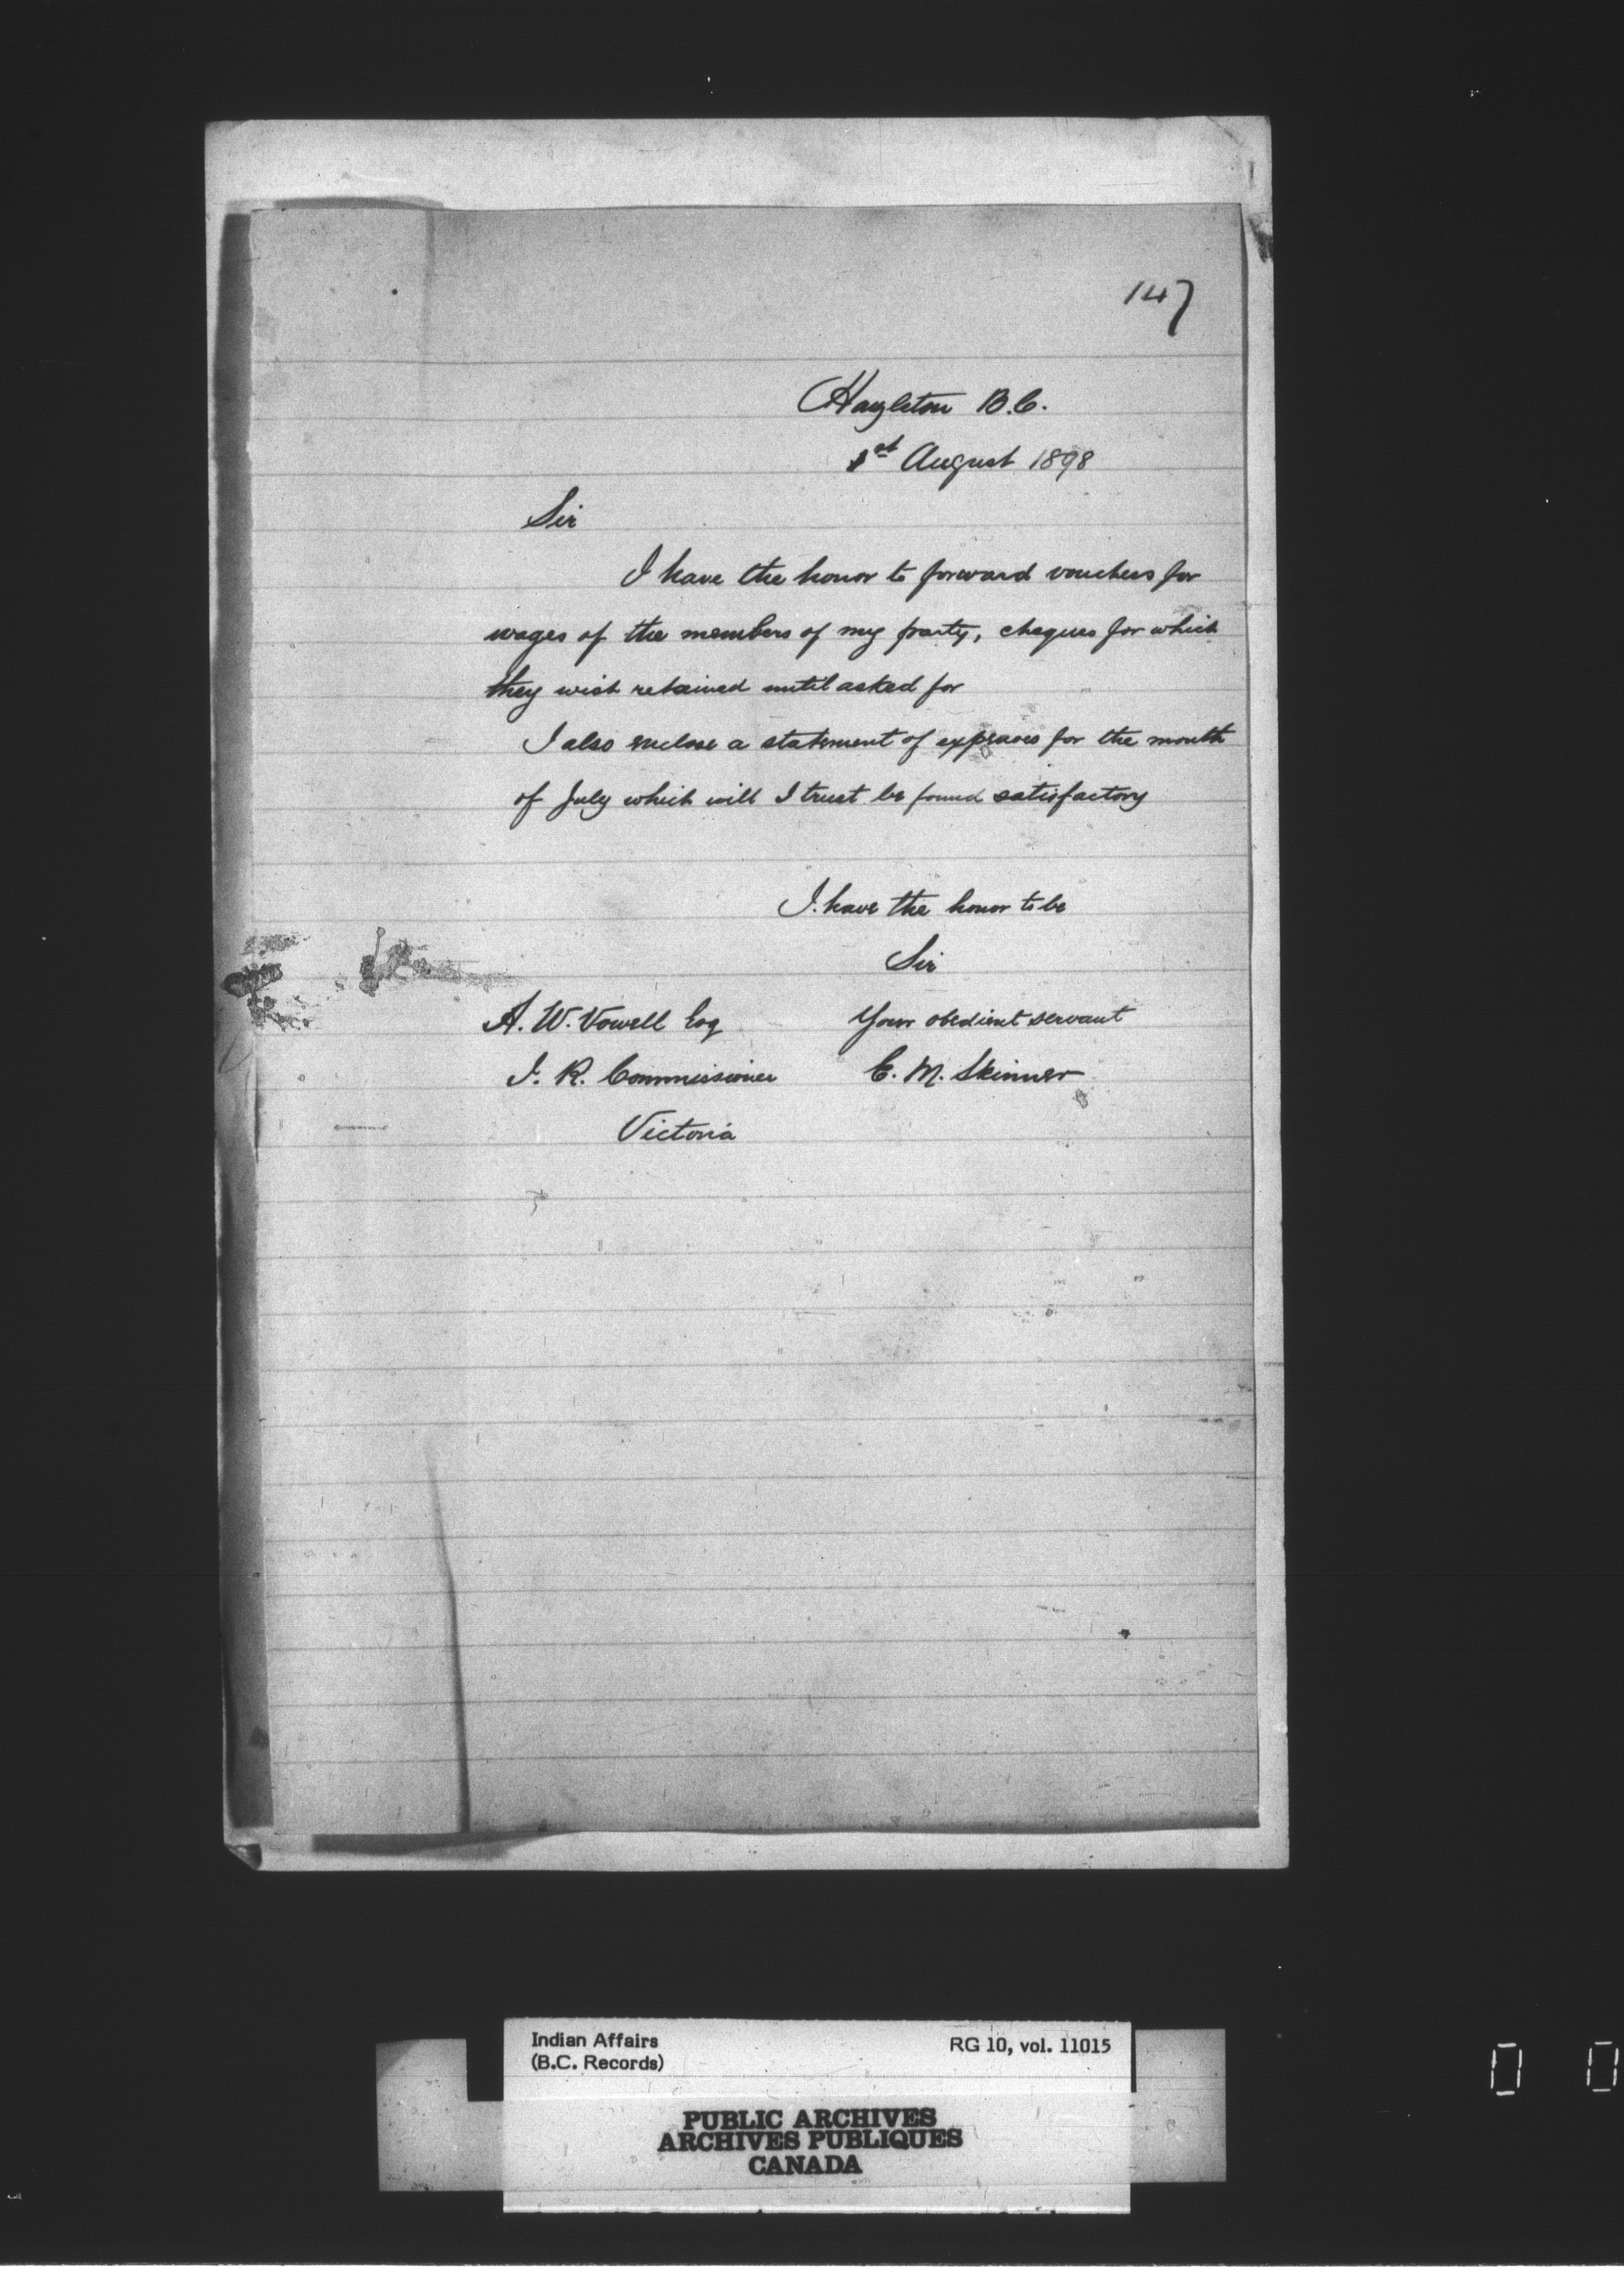 147
Hazleton B.C.
1st August 1898
Sir
I have the honor to forward vouchers for
wages of the members of my party, cheques for which
they wish retained until asked for
I also enclose a statement of expenses for the month
of July which will I trust be found satisfactory
I have the honor to be
Sir
Your obedient servant
C. M. Skinner
A. W. Vowell Esq
I. R. Commissioner
Victoria
Indian Affairs
(B.C. Records)
RG 10, vol. 11015
PUBLIC ARCHIVES
ARCHIVES PUBLIQUES
CANADA
0 0